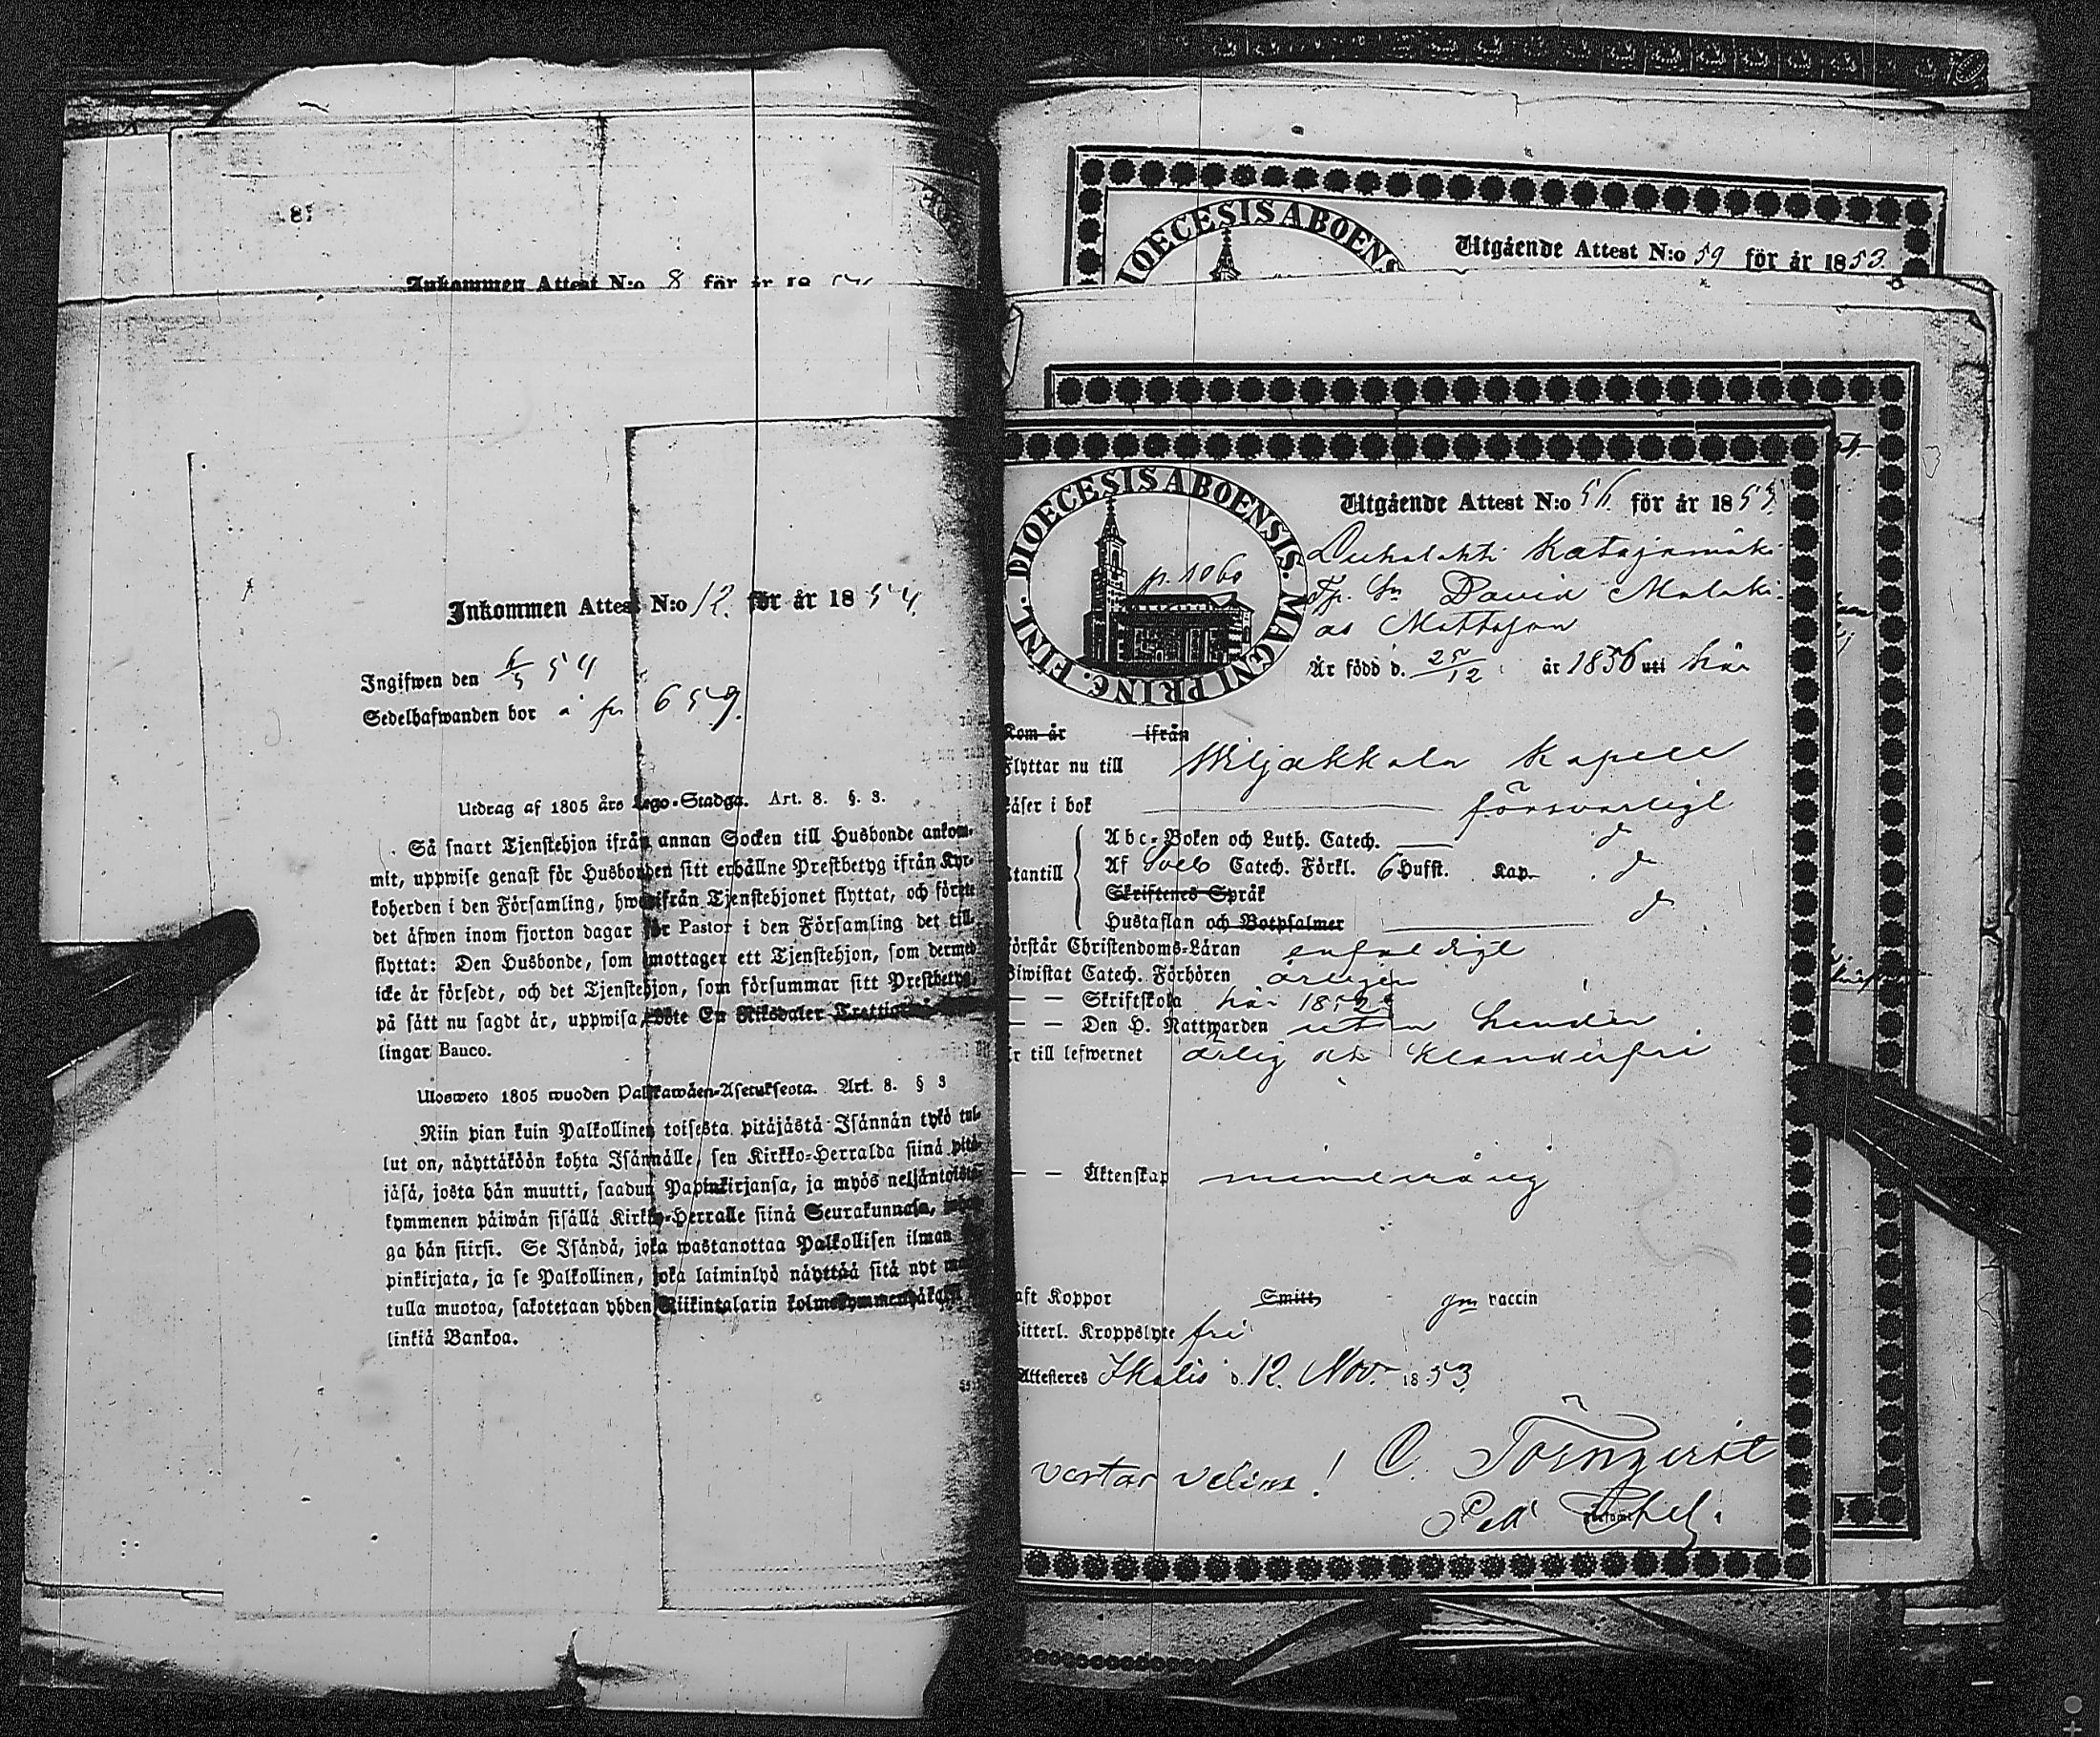 18.
Inkommen Attest N:o 8 för år 18
Inkommen Attest N:o 12. för år 1854.
Ingifwen den 6/5 54
Sedelhafwanden bor å pn 659.
Utdrag af 1805 års Lego-Stadga. Art. 8. §. 3.
Så snart Tjenstehjon ifrån annan Socken till Husbonde ankom-
mit, uppwise genast för Husbonden sitt erhållne Prestbetyg ifrån Kyr-
koherden i den Församling, hwarifrån Tjenstehjonet flyttat, och förete
det åfwen inom fjorton dagar för Pastor i den Församling det till-
flyttat: Den Husbonde, som mottager ett Tjenstehjon, som dermed
icke är försedt, och det Tjenstehjon, som försummar sitt Prestbetyg,
på sätt nu sagdt är, uppwisa, böte En Riksdaler Trettio
lingar Banco.
Ulosweto 1805 wuoden Palkkawäen-Asetuksesta. Art. 8. § 3
Niin pian kuin Palkollinen toisesta pitäjästä Isännän tykö tul-
lut on, näyttäköön kohta Isännälle, sen Kirkko-Herralda siinä pitä-
jäsä, josta hän muutti, saadun Papinkirjansa, ja myös neljäntoista-
kymmenen päiwän sisällä Kirkko-Herralle siinä Seurakunnasa,
ga hän siirsi. Se Isändä, joka wastanottaa Palkollisen ilman
pinkirjata, ja se Palkollinen, joka laiminlyö näyttää sitä nyt
tulla muotoa, sakotetaan yhden Riikintalarin
linkiä Bankoa.
DIOECESIS ABOENS
Utgående Attest N:o 59 för år 1853.
DIOECESIS ABOENSIS. MAGNI PRINC. FINL.
p. 1060
Utgående Attest N:o 56. för år 1853.
Katajamäki
David Malaki-
as Mattsson
Är född d. 25/12 år 1836 uti här
Kom år ifrån
Flyttar nu till Wiljakkala Kapell
Läser i bok försvarligt
Abc-Boken och Luth. Catech. d
Utantill Af Sveb Catech. Förkl. 6 Hufst. Kap. d
Skriftenes Språk
Hustaflan och Botpsalmer d
Förstår Christendoms-Läran enfaldigt
Biwistat Catech. Förhören årligen
— — Skriftskola här 1852
— — Den H. Nattwarden utan hinder
Är till lefwernet ärlig och klanderfri
— — Äktenskap minderårig
Haft Koppor Smitt, gm vaccin
Witterl. Kroppslyte fri
Attesteras Ikalis d. 12. Nov. 1853.
vertas velim! C. Törnqvist